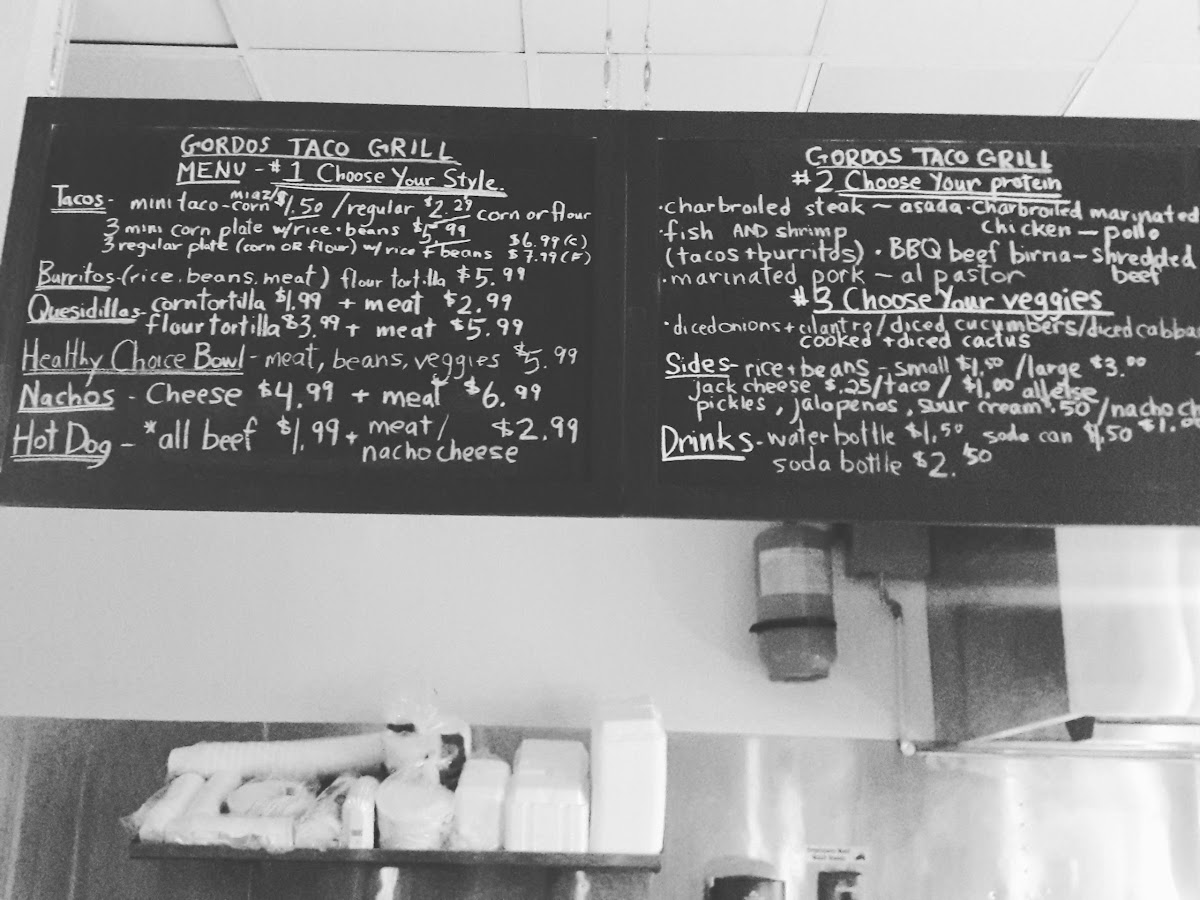 GORDOS TACO GRILL
MENU - #1 Choose Your Style.
Tacos - mini taco - corn $1.50 / regular $2.29 corn or flour
3 mini corn plate w/rice · beans $5.99
3 regular plate (corn OR flour) w/ rice + beans $6.99 (c) $7.79 (F)
Burritos - (rice, beans, meat) flour tortilla $5.99
Quesidillas - corn tortilla $1.99 + meat $2.99
flour tortilla $3.99 + meat $5.99
Healthy Choice Bowl - meat, beans, veggies $5.99
Nachos - Cheese $4.99 + meat $6.99
Hot Dog - *all beef $1.99 + meat / nacho cheese $2.99
GORDOS TACO GRILL
#2 Choose Your protein
·charbroiled steak - asada ·Charbroiled marinated
·fish AND shrimp chicken - pollo
(tacos + burritos) · BBQ beef birna - shredded
·marinated pork - al pastor beef
#3 Choose Your veggies
·diced onions + cilantro / diced cucumbers / diced
cooked + diced cactus
Sides - rice + beans - small $1.50 / large $3.00
jack cheese $.25/taco / $1.00 all else
pickles, jalopenos, sour cream .50 / nacho $1.00
Drinks - water bottle $1.50 soda can $1.50
soda bottle $2.50